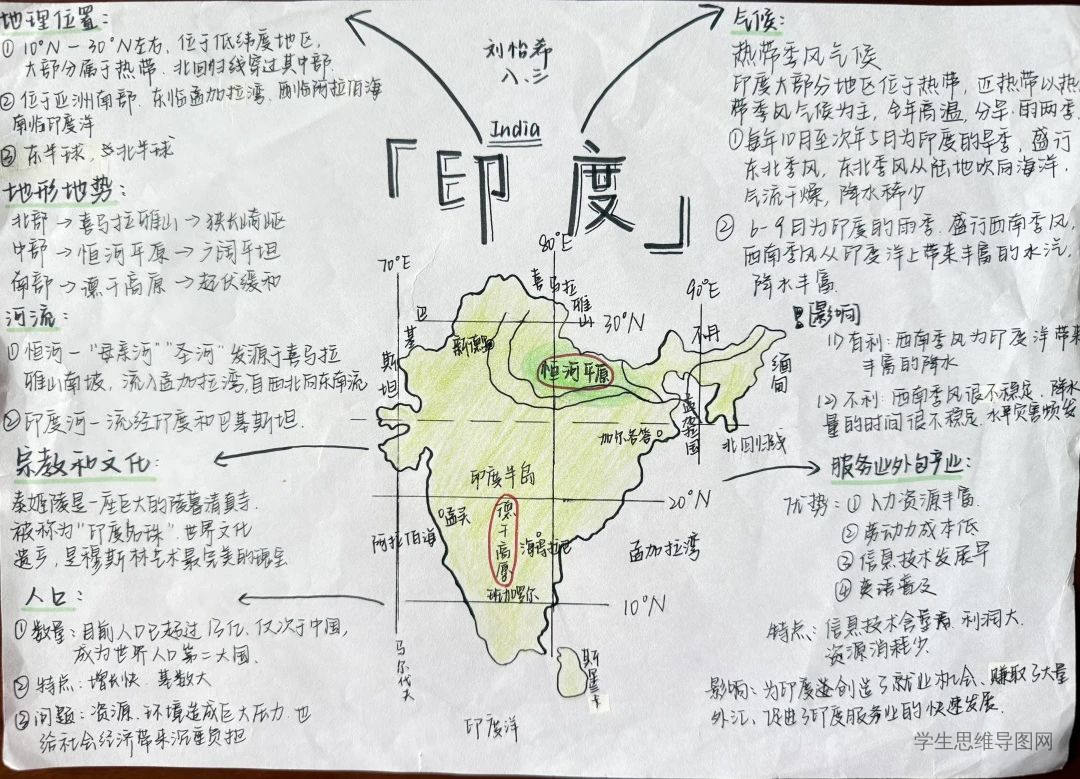 地理位置:
① 10°N - 30°N左右. 位于低纬度地区,
大部分属于热带. 北回归线穿过其中部.
② 位于亚洲南部. 东临孟加拉湾. 西临阿拉伯海
南临印度洋
③ 东半球, 北半球
地形地势:
北部 → 喜马拉雅山 → 狭长崎岖
中部 → 恒河平原 → 广阔平坦
南部 → 德干高原 → 起伏缓和
河流:
① 恒河 - "母亲河" "圣河" 发源于喜马拉
雅山南坡, 流入孟加拉湾, 自西北向东南流
② 印度河 - 流经印度和巴基斯坦.
宗教和文化:
泰姬陵是一座巨大的陵墓清真寺.
被称为"印度明珠". 世界文化
遗产, 是穆斯林艺术最完美的瑰宝
人口:
① 数量: 目前人口已超过13亿, 仅次于中国,
成为世界人口第二大国.
② 特点: 增长快. 基数大
③ 问题: 资源. 环境造成巨大压力. 也
给社会经济带来沉重负担
刘怡希
八、三
India
「印度」
70°E
80°E
90°E
喜马拉
雅山
30°N
巴
基
斯
坦
新德里
不丹
缅甸
恒河平原
孟加拉国
加尔各答
北回归线
印度半岛
20°N
孟买
德干高原
海得拉巴
阿拉伯海
孟加拉湾
班加罗尔
10°N
马尔代夫
斯里兰卡
印度洋
气候:
热带季风气候
印度大部分地区位于热带, 且热带以热
带季风气候为主, 全年高温, 分旱.雨两季.
① 每年10月至次年5月为印度的旱季, 盛行
东北季风, 东北季风从陆地吹向海洋.
气流干燥, 降水稀少
② 6-9月为印度的雨季. 盛行西南季风,
西南季风从印度洋上带来丰富的水汽,
降水丰富.
影响
(1) 有利: 西南季风为印度洋带来
丰富的降水
(2) 不利: 西南季风很不稳定. 降水
量的时间很不稳定. 水旱灾害频发
服务业外包产业:
优势: ① 人力资源丰富
② 劳动力成本低
③ 信息技术发展早
④ 英语普及
特点: 信息技术含量高. 利润大.
资源消耗少.
影响: 为印度创造了就业机会、赚取了大量
外汇、促进了印度服务业的快速发展.
学生思维导图网